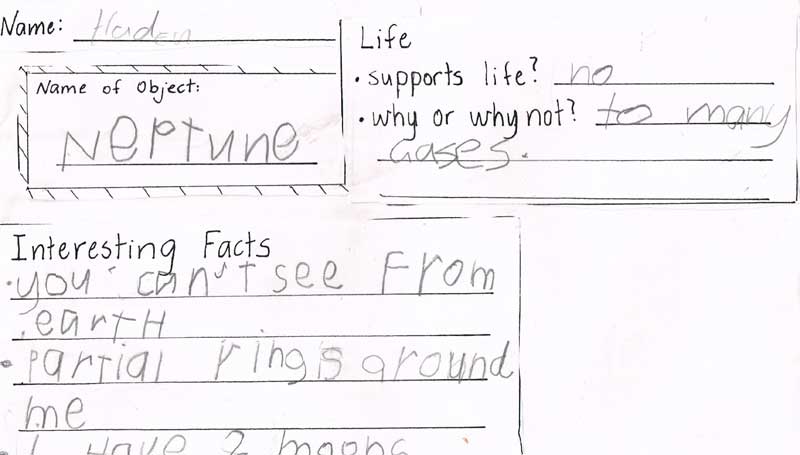 Name: Haden
Name of Object:
Neptune
Life
• supports life? no
• why or why not? to many
Gases.
Interesting Facts
• you can't see From
earth
• partial rings around
me
• I have 2 moons